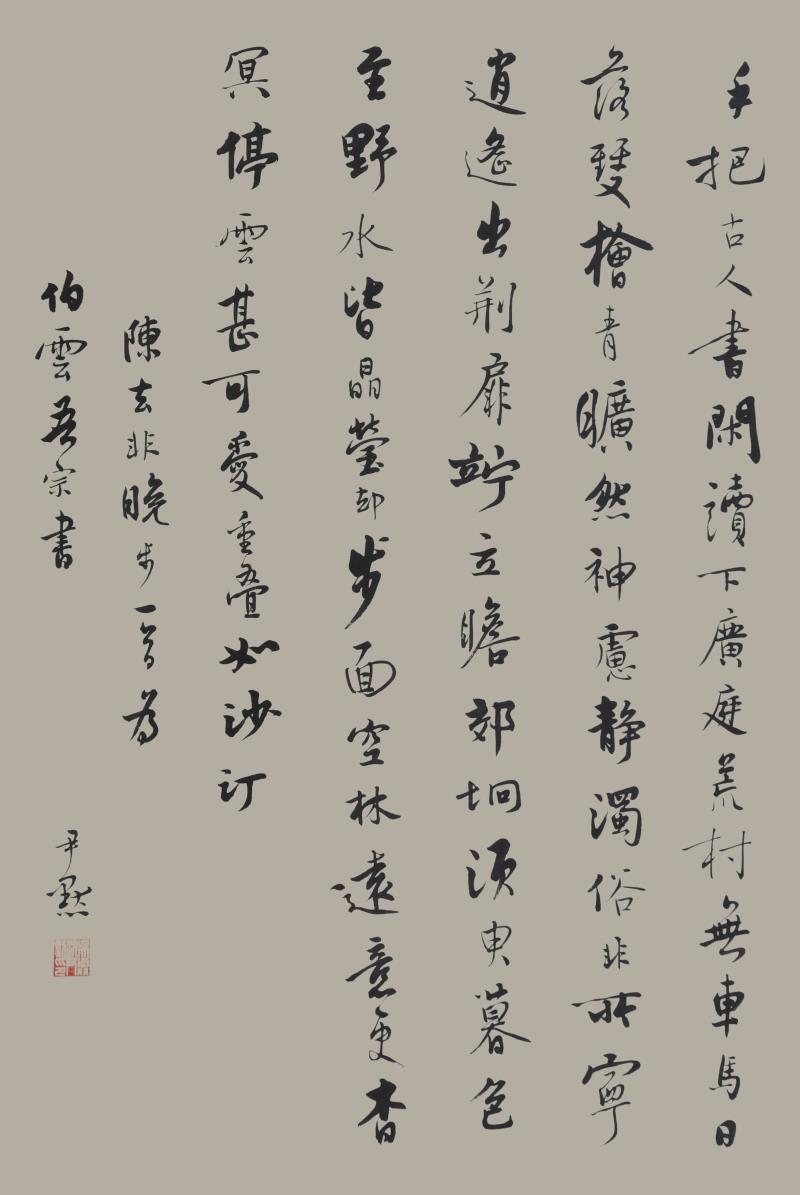 手把古人書閑讀下廣庭荒村無車馬日
落雙檜青曠然神慮静濁俗非所寧
逍遙出荆扉竚立瞻郊坰須臾暮色
至野水皆晶瑩却步面空林遠意更杳
冥停雲甚可愛重疊如沙訂
陳去非晚步一首为
伯雲吾宗書
尹默